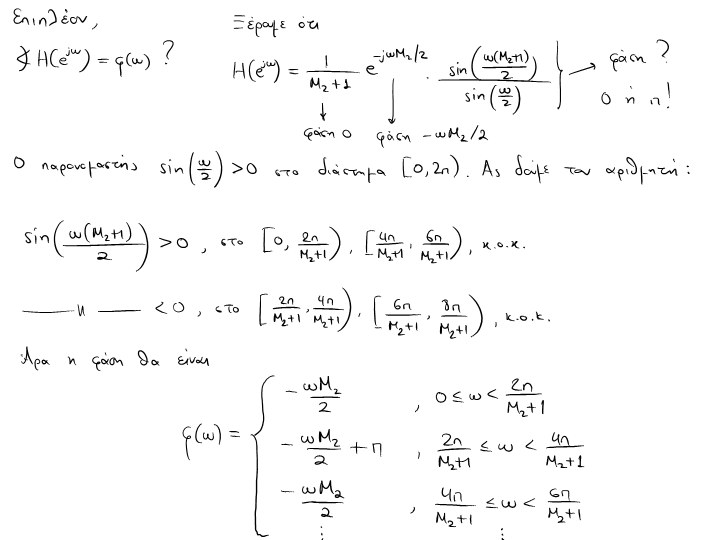 Επιπλέον,
∢ H(e^{jω}) = φ(ω) ?
Ξέραμε ότι
H(e^{jω}) = \frac{1}{M_2+1} e^{-jωM_2/2} · \frac{sin(\frac{ω(M_2+1)}{2})}{sin(\frac{ω}{2})} } → φάση ?
0 ή π!
↓ φάση 0 ↓ φάση -ωM_2/2
Ο παρονομαστής sin(\frac{ω}{2}) > 0 στο διάστημα [0, 2π). Ας δούμε τον αριθμητή:
sin(\frac{ω(M_2+1)}{2}) > 0, στο [0, \frac{2π}{M_2+1}), [\frac{4π}{M_2+1}, \frac{6π}{M_2+1}), κ.ο.κ.
—— " —— < 0, στο [\frac{2π}{M_2+1}, \frac{4π}{M_2+1}), [\frac{6π}{M_2+1}, \frac{8π}{M_2+1}), κ.ο.κ.
Άρα η φάση θα είναι
φ(ω) = {
-\frac{ωM_2}{2} , 0 ≤ ω < \frac{2π}{M_2+1}
-\frac{ωM_2}{2} + π , \frac{2π}{M_2+1} ≤ ω < \frac{4π}{M_2+1}
-\frac{ωM_2}{2} , \frac{4π}{M_2+1} ≤ ω < \frac{6π}{M_2+1}
⋮ ⋮